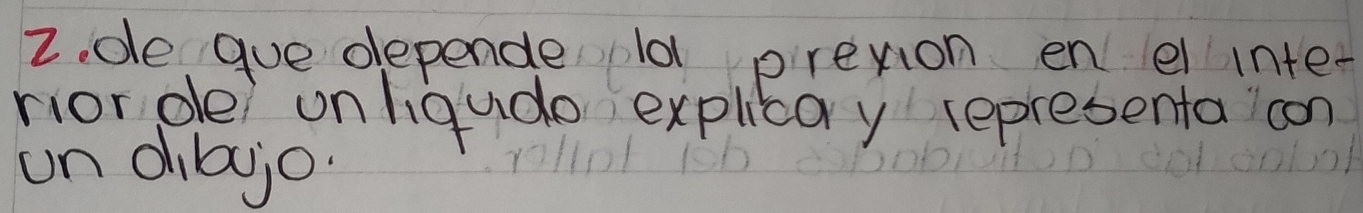 2. de que depende la prexion en el inte-
rior de un liquido explica y representa con
un dibujo.